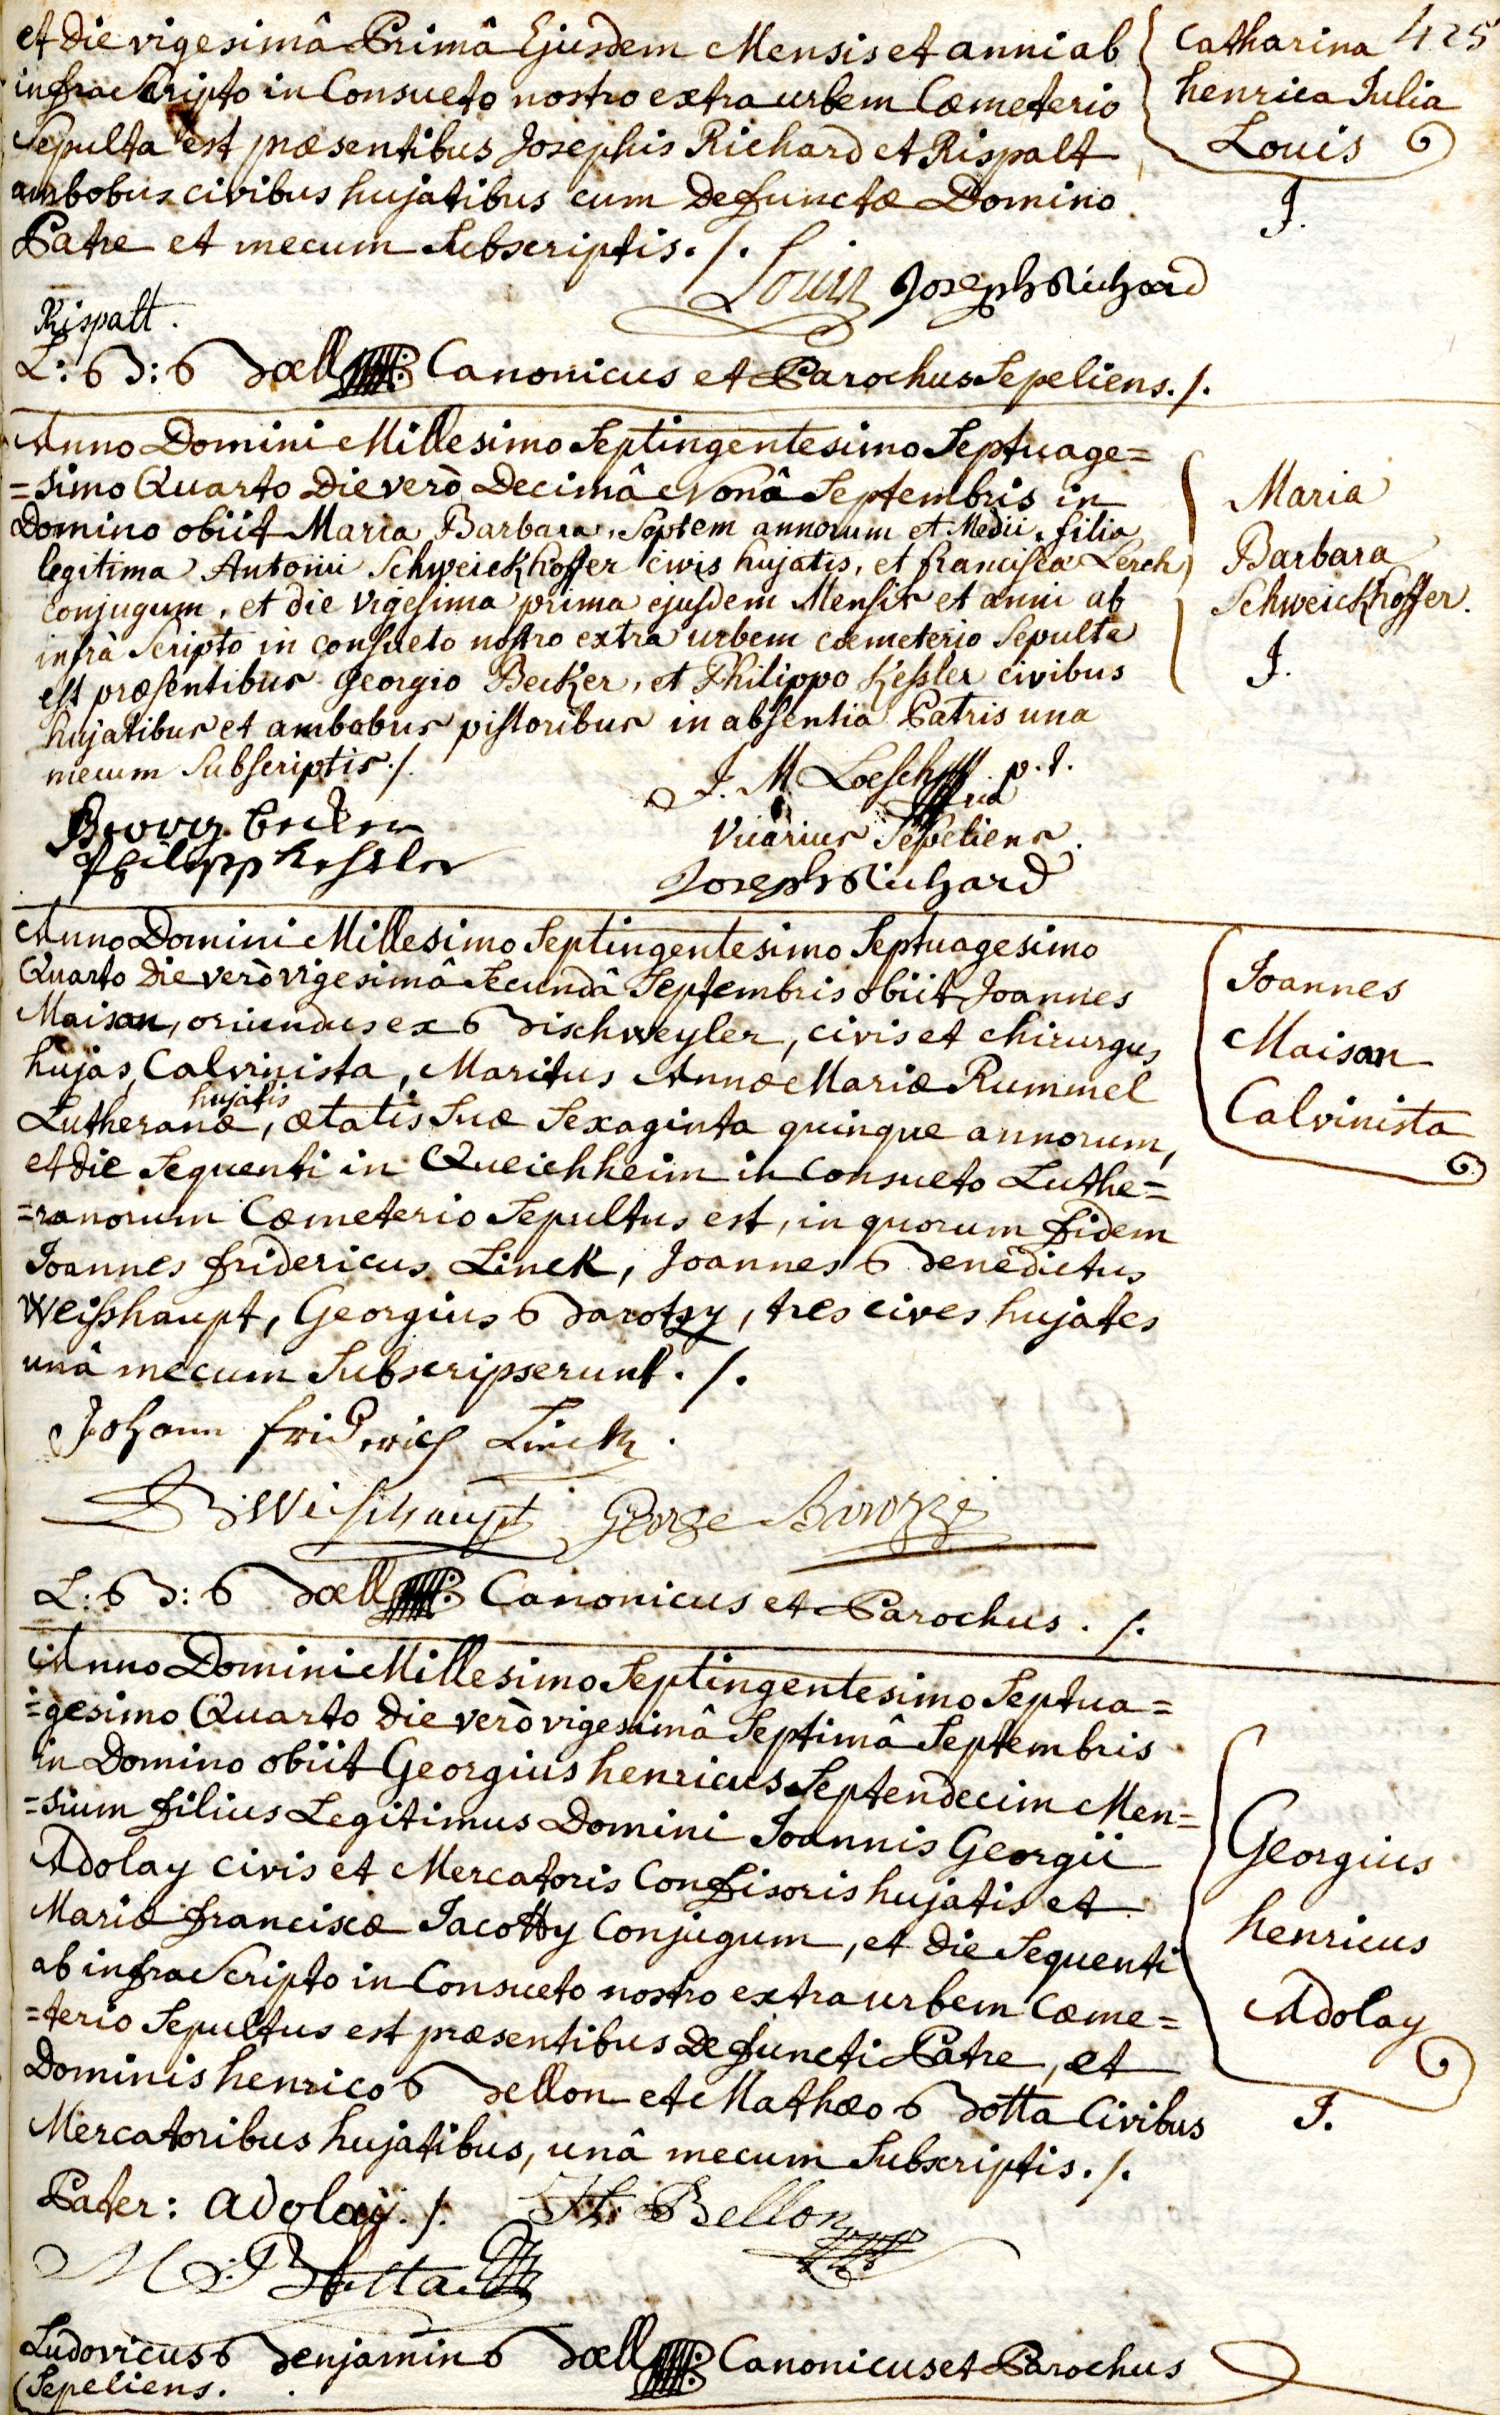 425
et die vigesimâ Primâ Ejusdem Mensis et anni ab
infrascripto in Consueto nostro extra urbem Cœmeterio
Sepulta est præsentibus Josephis Richard et Rispalt
ambobus civibus hujatibus cum defunctæ Domino
Patre et mecum Subscriptis ./.
Catharina
henrica Julia
Louis
J.
Louis Joseph Richard
Rispalt.
L: B: Bœll Canonicus et Parochus Sepeliens ./.
Anno Domini Millesimo Septingentesimo Septuage=
=simo Quarto Die verò Decimâ Nonâ Septembris in
Domino obiit Maria Barbara, Septem annorum et Medii, filia
legitima Antonii Schweickhoffer civis hujatis, et francisca Lerch
conjugum, et die vigesima prima ejusdem Mensis et anni ab
infrà Scripto in consueto nostro extra urbem cœmeterio Sepulta
est præsentibus georgio Becker, et Philippo Kessler civibus
hujatibus et ambobus pistoribus in absentia Patris una
mecum Subscriptis ./.
Maria
Barbara
Schweickhoffer.
J.
J. M Loesch p.t.
Vicarius Sepeliens.
Georg Becker
Philipp Kessler
Joseph Richard
Anno Domini Millesimo Septingentesimo Septuagesimo
Quarto Die verò vigesimâ Secundâ Septembris obiit Joannes
Maison, oriundus ex Bischweyler, civis et chirurgus
hujas, Calvinista, Maritus Annæ Mariæ Rummel
hujatis
Lutheranæ, ætatis Suæ Sexaginta quinque annorum,
et die Sequenti in Queichheim in Consueto Luthe=
=ranorum Cœmeterio Sepultus est, in quorum fidem
Joannes fridericus Linck, Joannes Benedictus
Weisshaupt, Georgius Barotzy, tres cives hujates
unâ mecum Subscripserunt ./.
Joannes
Maison
Calvinista
Johann friderich Linck.
B Weisshaupt George Barozzi
L: B: Bœll Canonicus et Parochus ./.
Anno Domini Millesimo Septingentesimo Septua=
=gesimo Quarto Die verò vigesimâ Septimâ Septembris
in Domino obiit Georgius henricus Septendecim Men=
=sium filius Legitimus Domini Joannis Georgii
Adolay civis et Mercatoris Confisoris hujatis et
Mariæ franciscæ Jacotty Conjugum, et die Sequenti
ab infrascripto in Consueto nostro extra urbem Cœme=
=terio Sepultus est præsentibus defuncti Patre, et
Dominis henrico Bellon et Mathæo Botta Civibus
Mercatoribus hujatibus, unâ mecum Subscriptis ./.
Georgius
henricus
Adolay
J.
Pater: adolaÿ ./. Bellon
M Botta
Ludovicus Benjamin Bœll Canonicus et Parochus
Sepeliens.